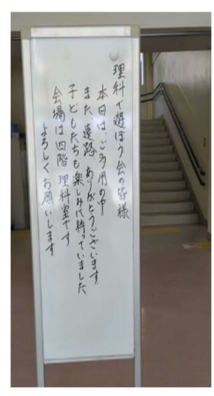 理科で遊ぼう会の皆様
本日はご多用の中
また、遠路 ありがとうございます
子どもたちも楽しみに待っていました
会場は四階 理科室です
よろしくお願いします